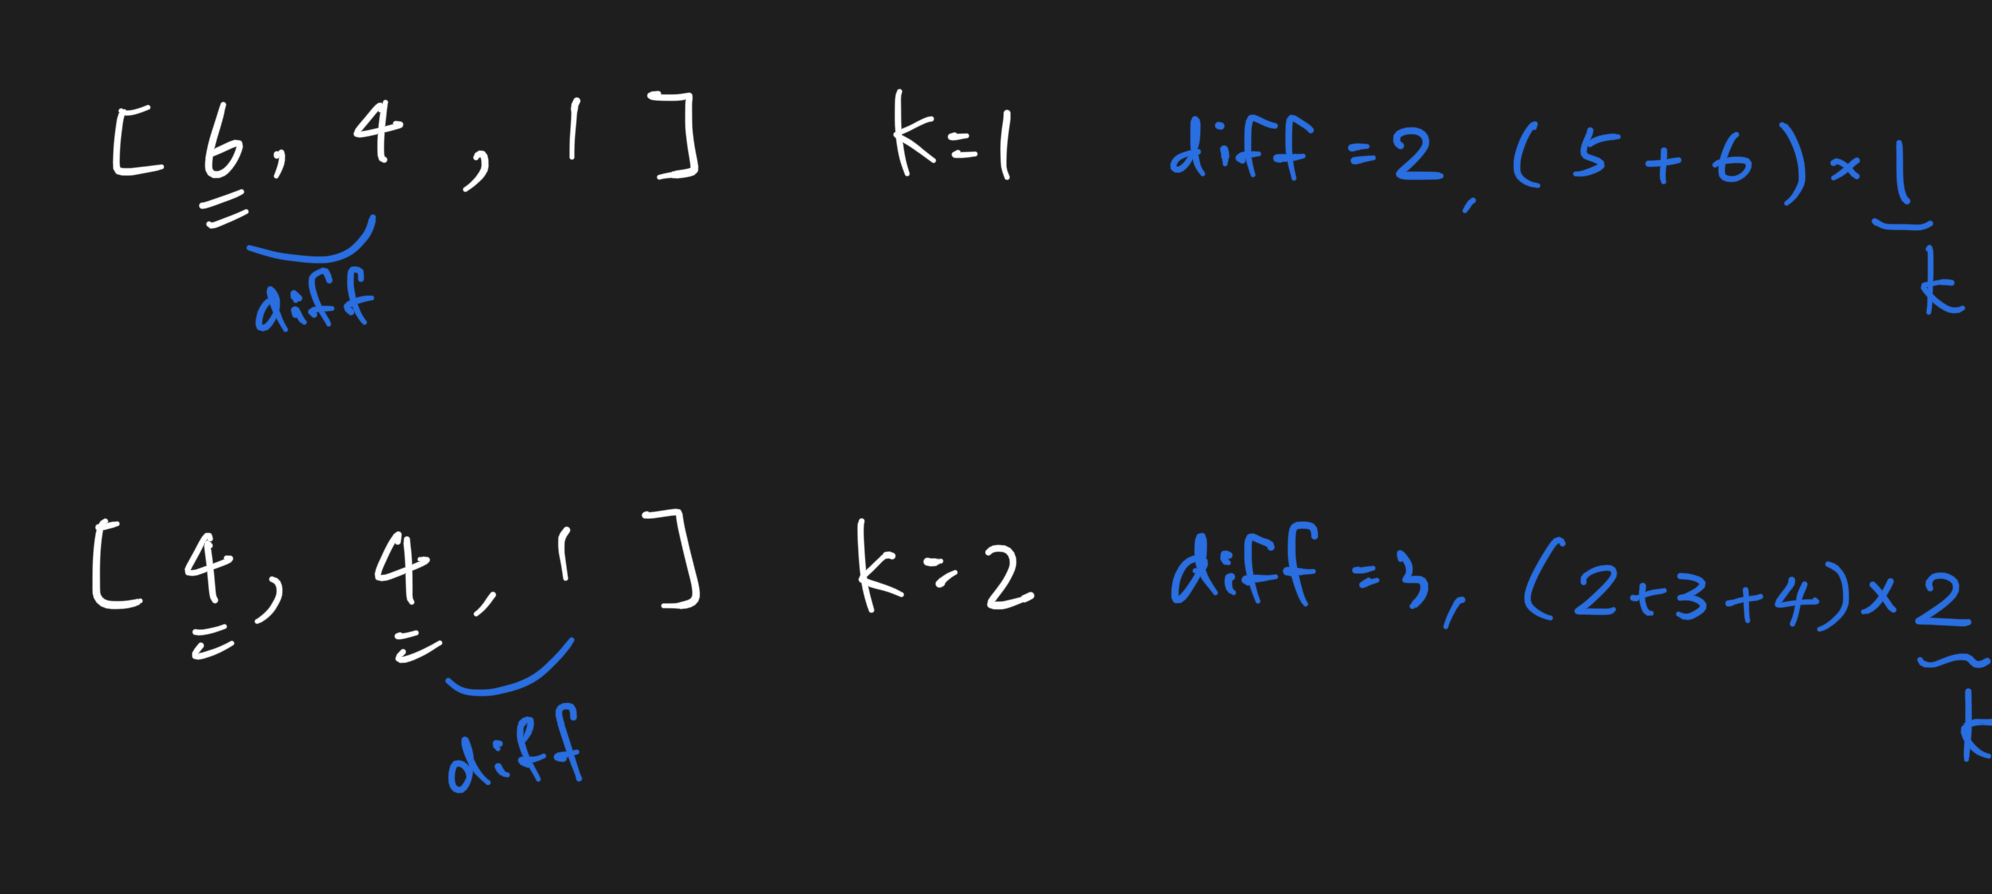 [ 6, 4 , 1 ] k=1 diff = 2, ( 5 + 6 ) × 1
diff
k
[ 4, 4 , 1 ] k=2 diff = 3, (2+3+4) × 2
diff
k